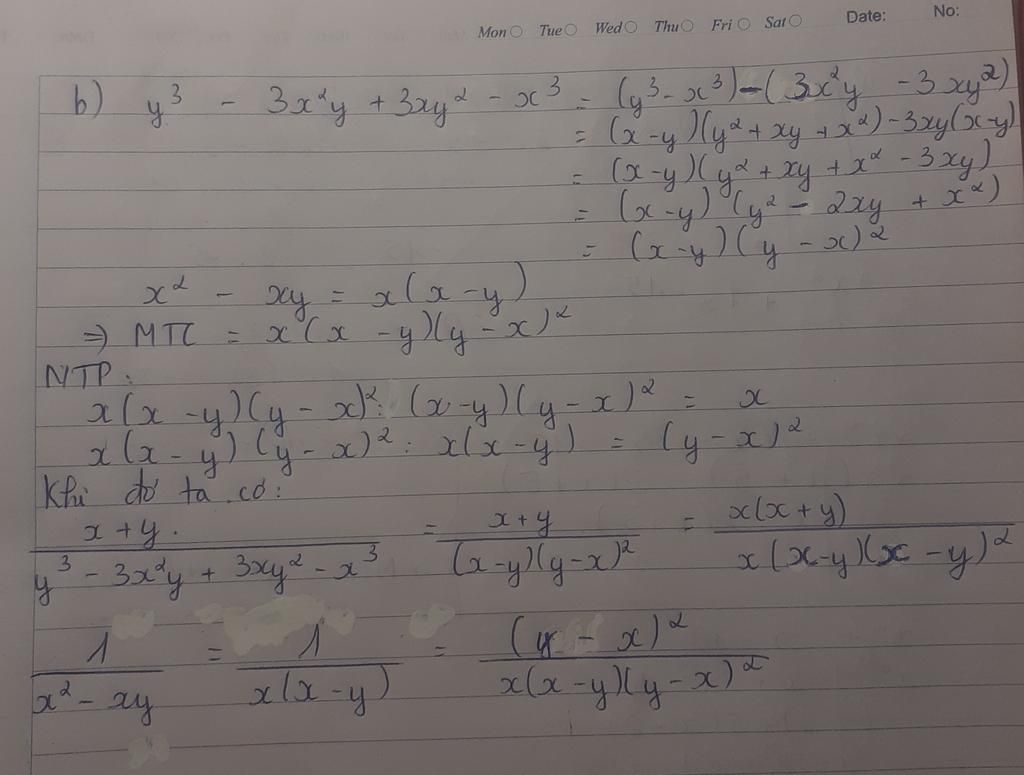 Mon Tue Wed Thu Fri Sat Date: No:
b) y³ - 3x²y + 3xy² - x³ = (y³ - x³) - (3x²y - 3xy²)
= (x-y)(y² + xy + x²) - 3xy(x-y)
= (x-y)(y² + xy + x² - 3xy)
= (x-y)(y² - 2xy + x²)
= (x-y)(y-x)²
x² - xy = x(x-y)
⇒ MTC = x(x-y)(y-x)²
NTP:
x(x-y)(y-x)² : (x-y)(y-x)² = x
x(x-y)(y-x)² : x(x-y) = (y-x)²
Khi đó ta có:
(x+y)/(y³ - 3x²y + 3xy² - x³) = (x+y)/((x-y)(y-x)²) = x(x+y)/(x(x-y)(x-y)²)
1/(x² - xy) = 1/(x(x-y)) = (y-x)²/(x(x-y)(y-x)²)